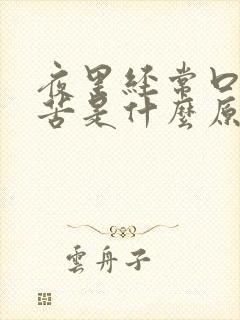 夜里經常口
苦是什麼原
雲舟子